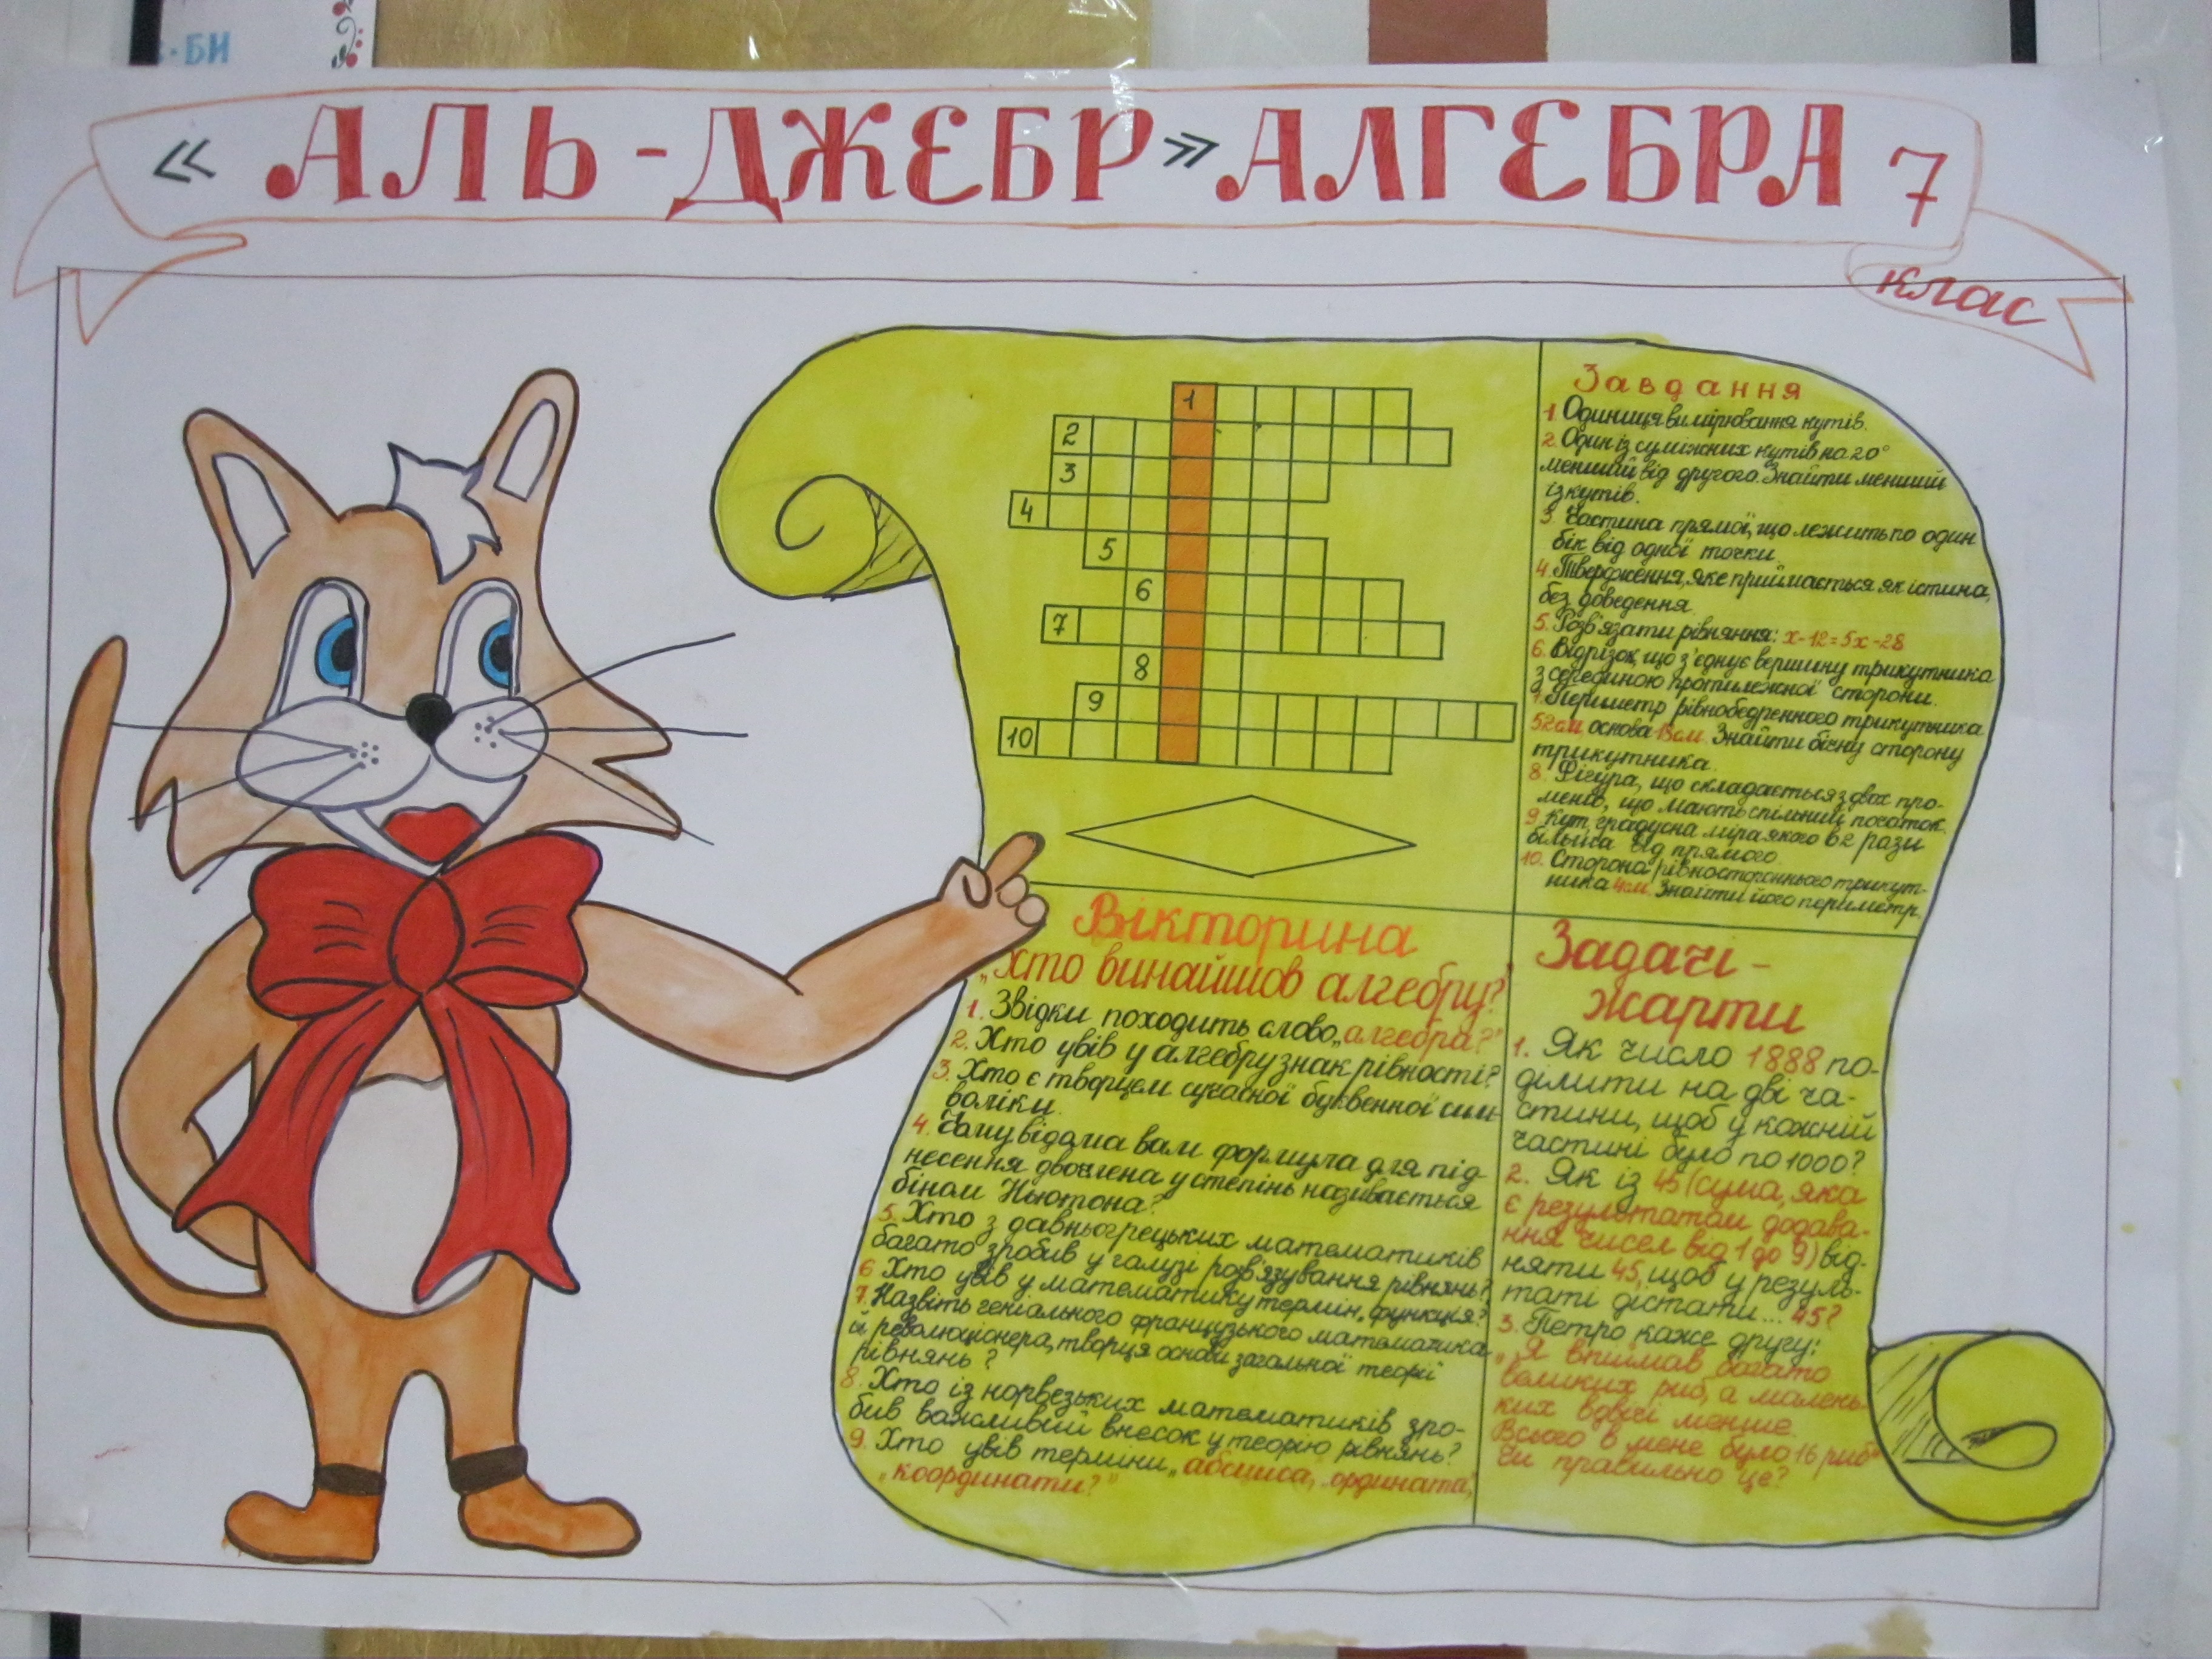 · БИ
« АЛЬ - ДЖЕБР » АЛГЕБРА 7
клас
1
2
3
4
5
6
7
8
9
10
Завдання
1. Одиниця вимірювання кутів.
2. Один із суміжних кутів на 20°
менший від другого. Знайти менший
із кутів.
3. Частина прямої, що лежить по один
бік від одної точки.
4. Твердження, яке приймається як істина,
без доведення.
5. Розв'язати рівняння: x-12=5x-28
6. Відрізок, що з'єднує вершину трикутника
з серединою протилежної сторони.
7. Периметр рівнобедренного трикутника
52 см, основа см. Знайти бічну сторону
трикутника.
8. Фігура, що складається з двох про-
менів, що мають спільний початок.
9. Кут, градусна міра якого в 2 рази
більша від прямого.
10. Сторона рівностороннього трикут-
ника 4 см. Знайти його периметр.
Вікторина
„Хто винайшов алгебру?
1. Звідки походить слово „алгебра?"
2. Хто увів у алгебру знак рівності?
3. Хто є творцем сучасної буквенної сим-
воліки.
4. Чому відома вам формула для під-
несення двочлена у степінь називається
біном Ньютона?
5. Хто з давньогрецьких математиків
багато зробив у галузі розв'язування рівнянь?
6. Хто увів у математику термін „функція?
7. Назвіть геніального французького математика
й революціонера, творця основ загальної теорії
рівнянь?
8. Хто із норвезьких математиків зро-
бив важливий внесок у теорію рівнянь?
9. Хто увів терміни „абсциса, „ордината,
„координати?"
Задачі -
жарти
1. Як число 1888 по-
ділити на дві ча-
стини, щоб у кожній
частині було по 1000?
2. Як із 45 (сума, яка
є результатом додава-
ння чисел від 1 до 9) від-
няти 45, щоб у резуль-
таті дістати... 45?
3. Петро каже другу:
„Я впіймав багато
великих риб, а малень-
ких вдвічі менше.
Всього в мене було 16 риб"
Чи правильно це?